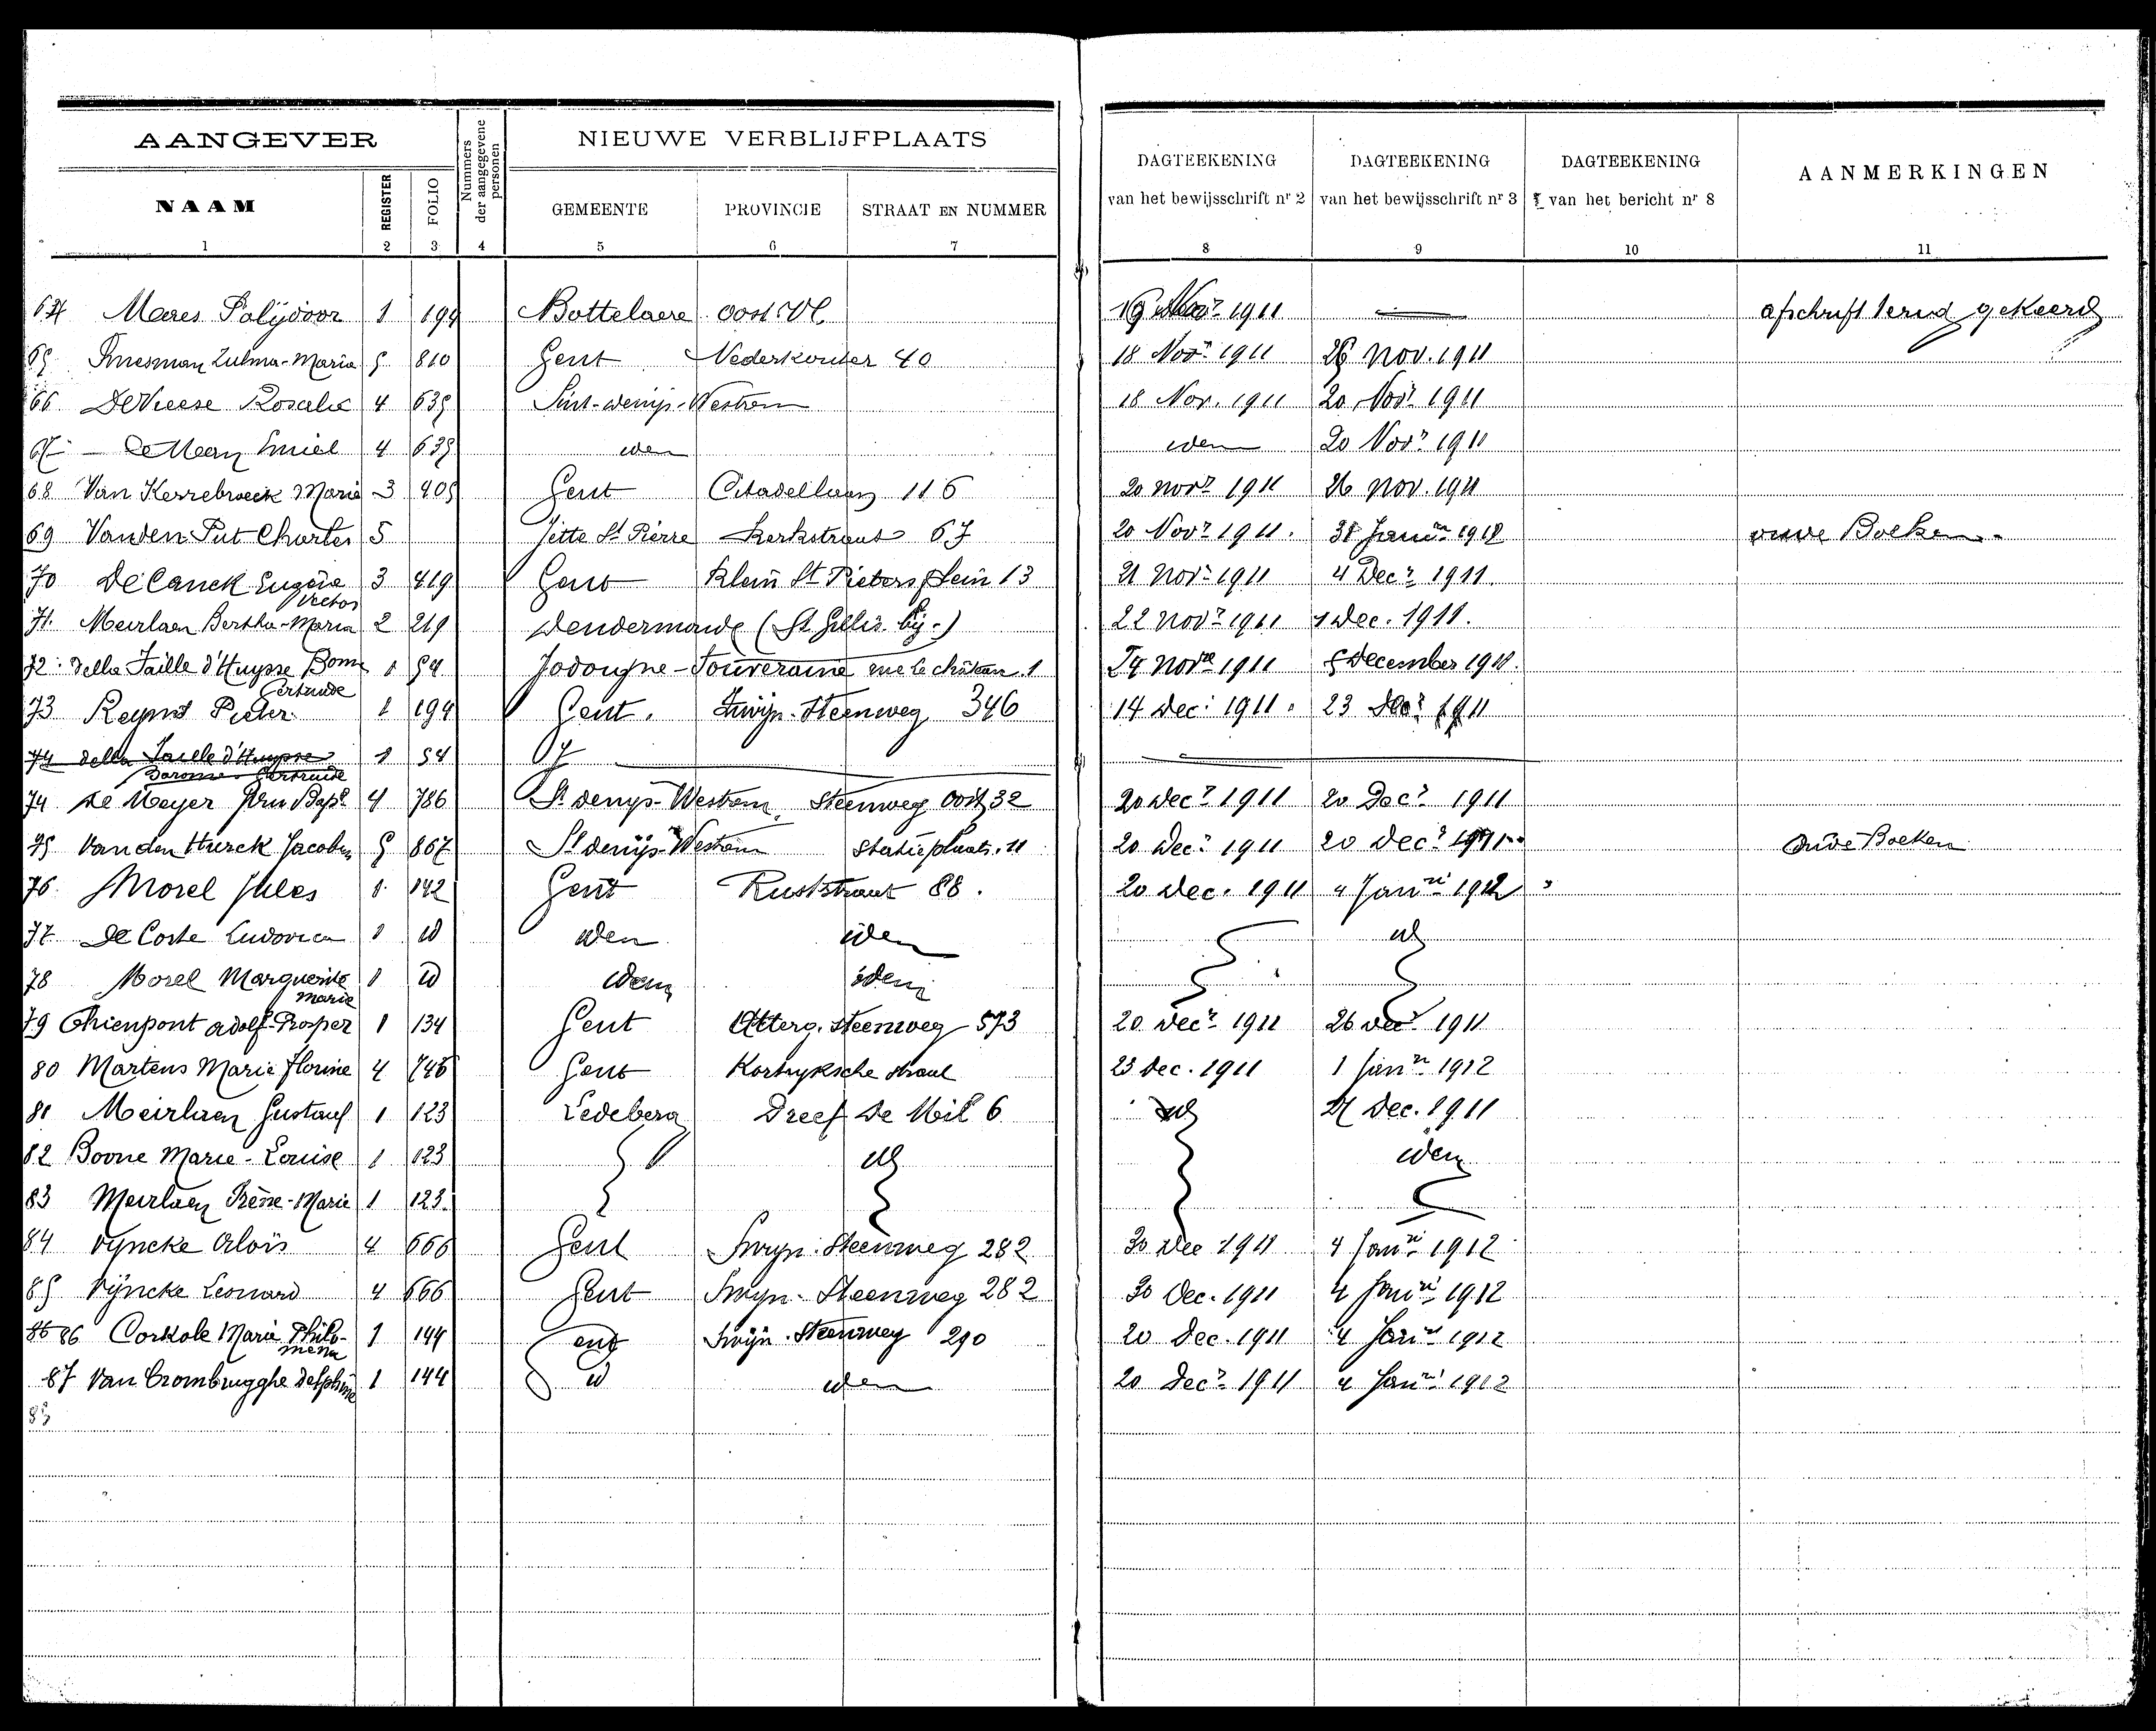 AANGEVER
NIEUWE VERBLIJFPLAATS
Nummers der aangegevene personen
DAGTEEKENING van het bewijsschrift nr 2
DAGTEEKENING van het bewijsschrift nr 3
DAGTEEKENING van het bericht nr 8
AANMERKINGEN
NAAM REGISTER FOLIO GEMEENTE PROVINCIE STRAAT EN NUMMER
1 2 3 4 5 6 7 8 9 10 11
64 Maes Polijdoor 1 194 Bottelaere Oost Vl. 1911 afschrift terug gekeerd
65 Zulma-Maria 5 810 Gent Nederkouter 40 18 Nov.r 1911 26 Nov. 1911
66 DeVleese Rosalie 4 635 Sint-denijs-Westrem 18 Nov. 1911 20 Nov.r 1911
67 Emiel 4 635 idem idem 20 Nov.r 1911
68 Van Kerrebroeck Marie 3 405 Gent Citadellaan 116 20 nov.r 1911 26 Nov. 1911
69 Vanden Put Charles 5 Jette St Pierre Kerkstraat 67 20 Nov.r 1911. 31 Janu.ri 1912 Boeken
70 De Canck Eugène Victor 3 419 Gent Klein St Pieters plein 13 21 Nov.r 1911 4 Dec.r 1911.
71. Meirlaen Bertha-Maria 2 219 Dendermonde (St Gillis bij.) 22 Nov.r 1911 1 Dec. 1911.
72. della Faille d'Huysse Gertrude 1 54 Jodougne-Souveraine rue le château 1 24 Nov.r 1911 5 December 1911.
73 Reyns Pieter 1 194 Gent. Zwijn.Steenweg 346 14 Dec. 1911. 23 Dec.r 1911
74 della Faille d'Huysse Baronne Gertrude 1 54
74 De Meyer Jan Bapt. 4 786 St denys-Westrem Steenweg Oost 32 20 Dec.r 1911 20 Dec.r 1911
75 Van den Hurck Jacobus 5 867 St denijs-Westrem Statieplaats. 11 20 Dec.r 1911 20 Dec.r 1911 Oude Boeken
76. Morel Jules 1 142 Gent Ruststraat 88. 20 Dec. 1911 4 Jan.ri 1912
77 De Coste Ludovica 1 id idem idem id
78 Morel Marguerite Marie 1 id idem idem
79 Ghienpont Adolf-Prosper 1 134 Gent Otterg. Steenweg 573 20 Dec.r 1911 26 Dec.r 1911
80 Martens Marie Florine 4 746 Gent Kortryksche straat 23 Dec. 1911 1 Jan.ri 1912
81 Meirlaen Gustaaf 1 123 Ledeberg Dreef De Mil 6 id 21 Dec. 1911
82 Boone Marie-Louise 1 123 id idem
83 Meirlaen Irène-Marie 1 123
84 Vyncke Aloïs 4 666 Gent Zwyn. Steenweg 282 30 Dec 1911 4 Jan.ri 1912
85 Vijncke Leonard 4 666 Gent Zwyn. Steenweg 282 30 Dec. 1911 4 Jan.ri 1912
86 86 Corkole Marie Philomena 1 144 Gent Zwijn. Steenweg 290 20 Dec. 1911 4 Jan.ri 1912
87 Van Crombrugghe Delphine 1 144 id idem 20 Dec.r 1911 4 Jan.ri 1912